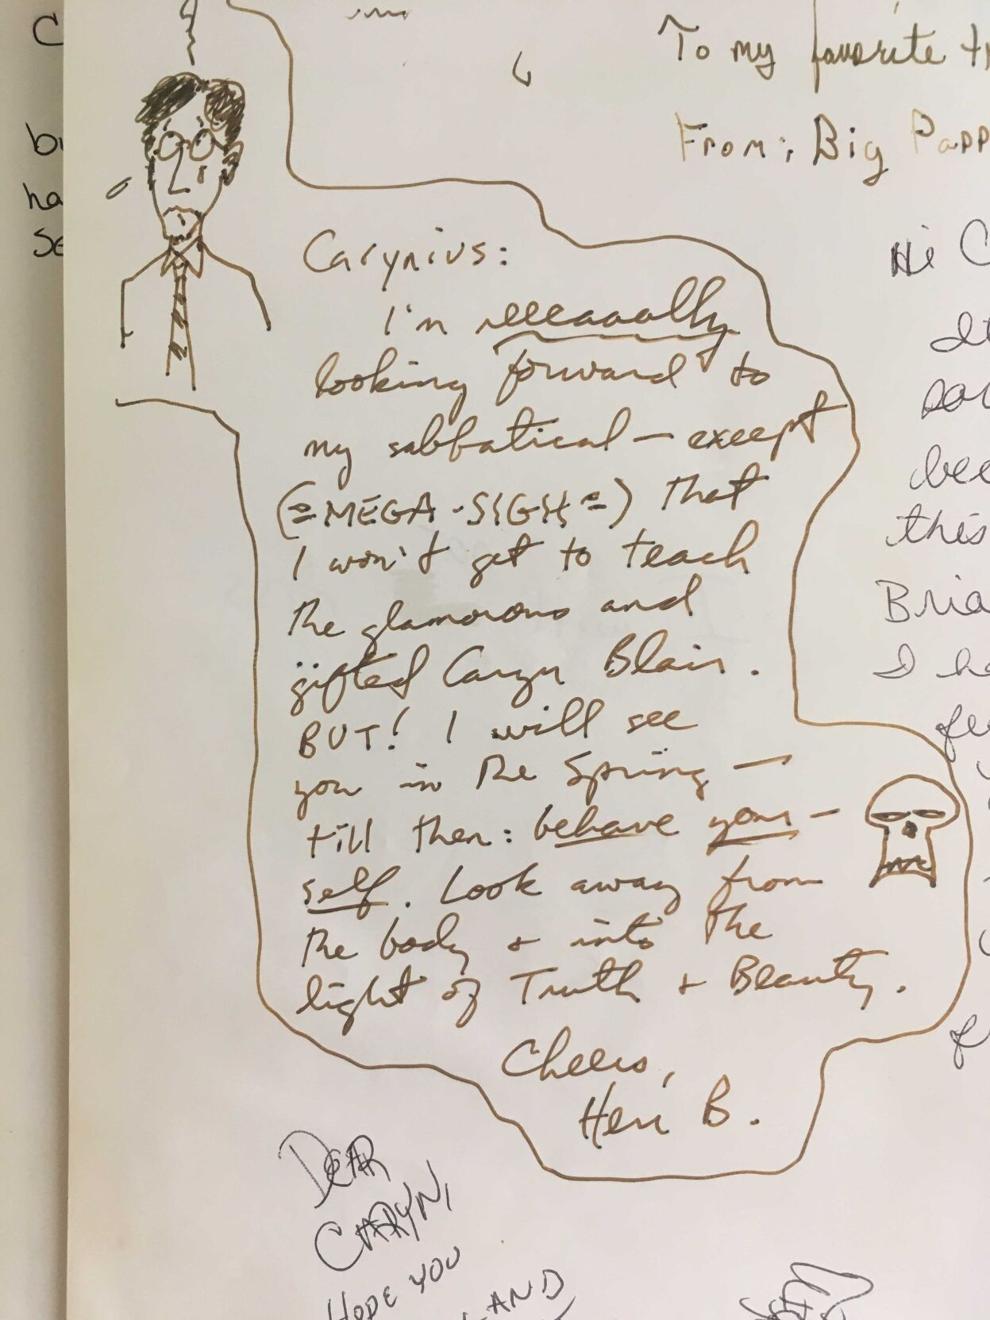 To my favorite
From: Big
Carynius:
I'm reeeaaally
looking forward to
my sabbatical — except
(=MEGA-SIGH=) that
I won't get to teach
the glamorous and
gifted Caryn Blair.
BUT! I will see
you in the Spring —
till then: behave your-
self. Look away from
the body + into the
light of Truth + Beauty.
Cheers,
Herr B.
Hi
this
DEAR
CARYN,
HOPE YOU
AND